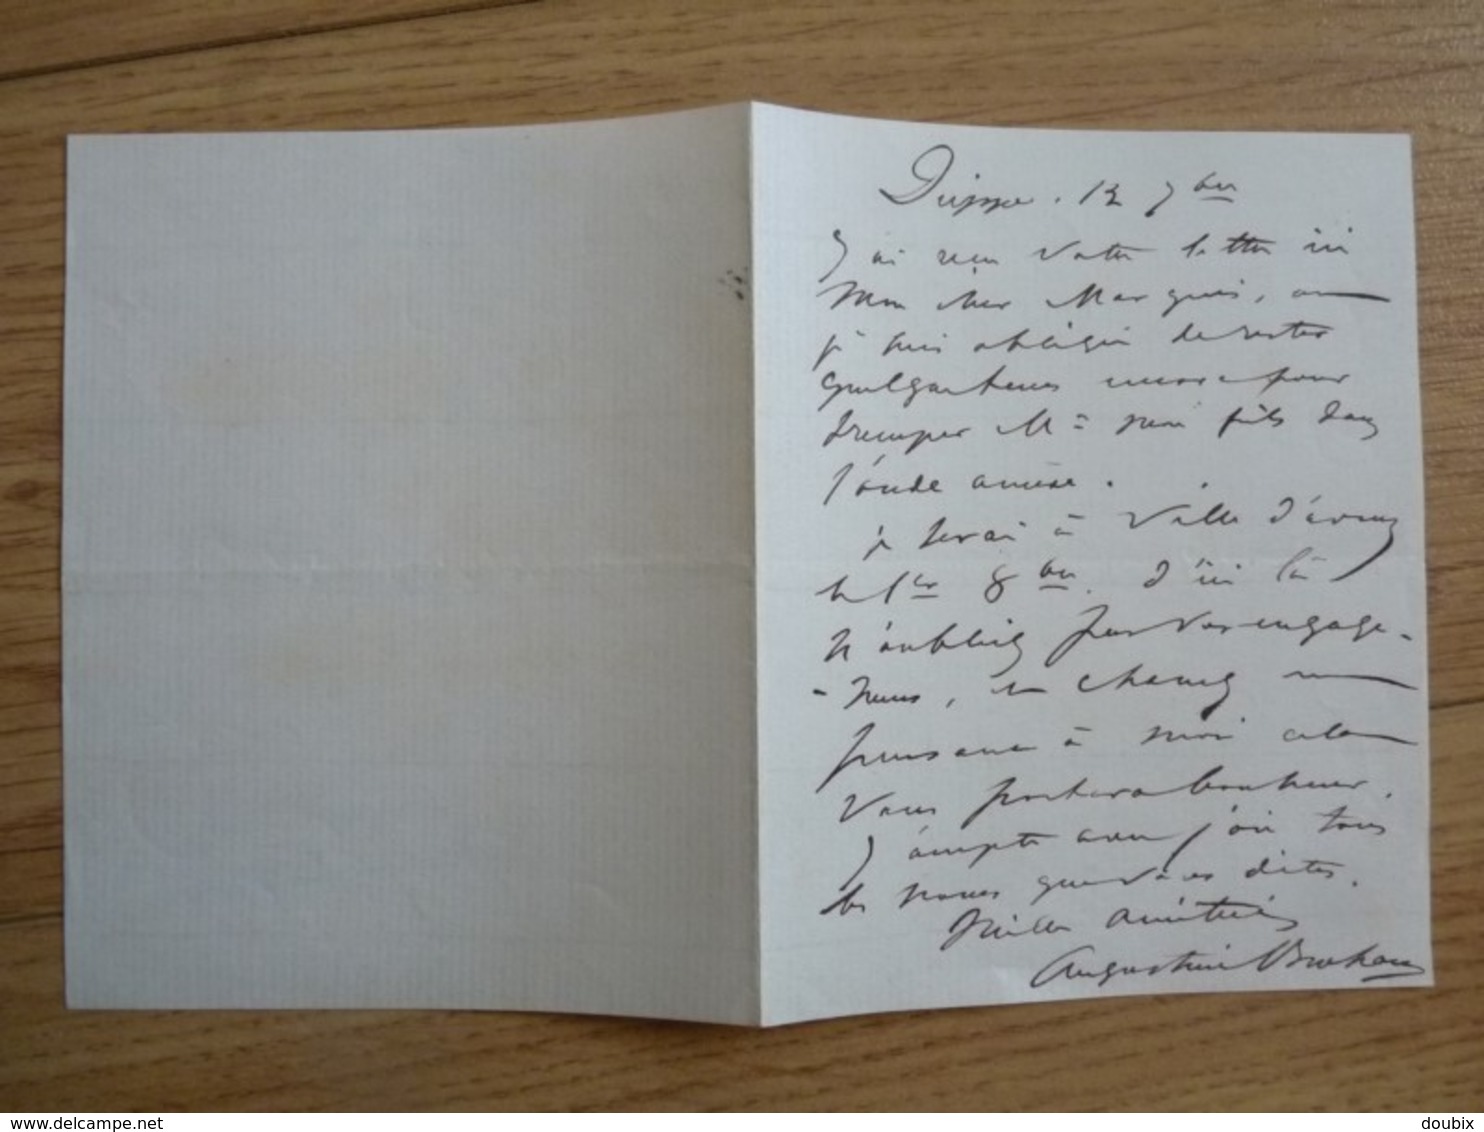 Dieppe. 12 7bre
J'ai reçu votre lettre ici
Mon cher Marquis, où
je suis obligée de rester
quelques tems encore pour
tremper Mr mon fils dans
l'onde amère.
je serai à Ville d'avray
le 1er 8bre. d'ici là
n'oubliez pas vos engage-
-mens, et chassez en
pensant à moi cela
vous portera bonheur.
J'accepte avec joie tous
les noms que vous dites.
Mille amitiés
Augustine Brohan
www.delcampe.net
doubix